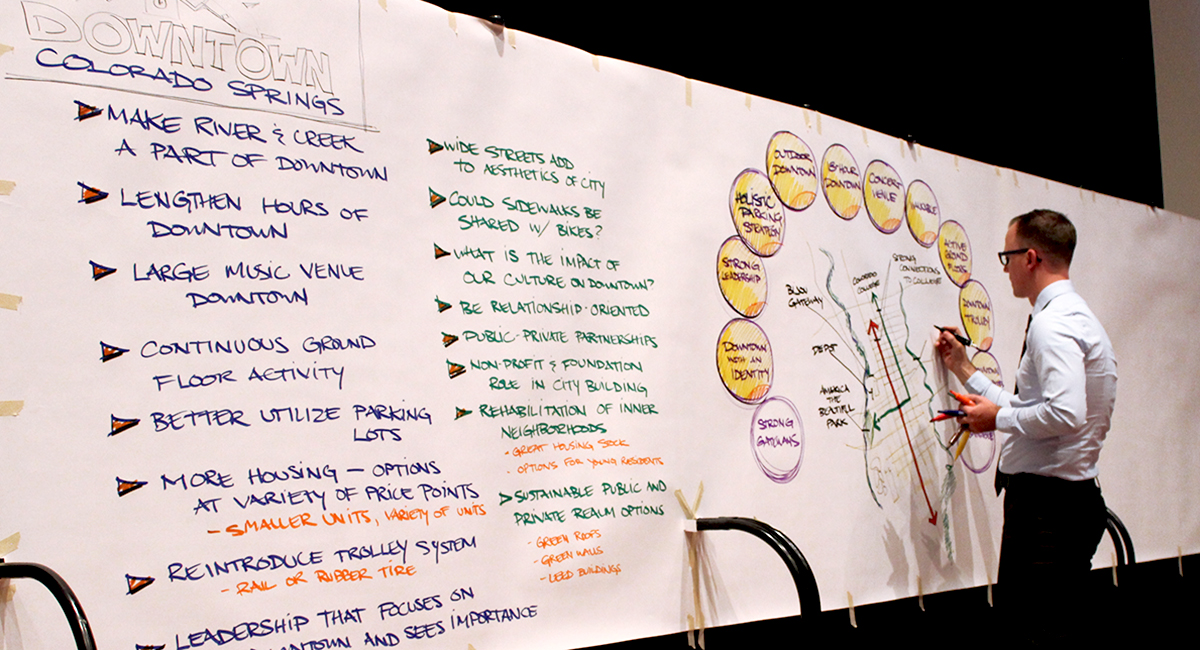 DOWNTOWN
COLORADO SPRINGS
MAKE RIVER & CREEK
A PART OF DOWNTOWN
LENGTHEN HOURS OF
DOWNTOWN
LARGE MUSIC VENUE
DOWNTOWN
CONTINUOUS GROUND
FLOOR ACTIVITY
BETTER UTILIZE PARKING
LOTS
MORE HOUSING – OPTIONS
AT VARIETY OF PRICE POINTS
- SMALLER UNITS, VARIETY OF UNITS
REINTRODUCE TROLLEY SYSTEM
- RAIL OR RUBBER TIRE
LEADERSHIP THAT FOCUSES ON
DOWNTOWN AND SEES IMPORTANCE
WIDE STREETS ADD
TO AESTHETICS OF CITY
COULD SIDEWALKS BE
SHARED W/ BIKES?
WHAT IS THE IMPACT OF
OUR CULTURE ON DOWNTOWN?
BE RELATIONSHIP-ORIENTED
PUBLIC-PRIVATE PARTNERSHIPS
NON-PROFIT & FOUNDATION
ROLE IN CITY BUILDING
REHABILITATION OF INNER
NEIGHBORHOODS
- GREAT HOUSING STOCK
- OPTIONS FOR YOUNG RESIDENTS
SUSTAINABLE PUBLIC AND
PRIVATE REALM OPTIONS
- GREEN ROOFS
- GREEN WALLS
- LEED BUILDINGS
OUTDOOR
DOWNTOWN
18-HOUR
DOWNTOWN
CONCERT
VENUE
WALKABLE
HOLISTIC
PARKING
STRATEGY
ACTIVE
GROUND
FLOORS
STRONG
LEADERSHIP
DOWNTOWN
TROLLEY
DOWNTOWN
WITH AN
IDENTITY
STRONG
GATEWAYS
BIJOU
GATEWAY
COLORADO
COLLEGE
STRONG
CONNECTIONS
TO COLLEGE
DEPOT
AMERICA
THE
BEAUTIFUL
PARK